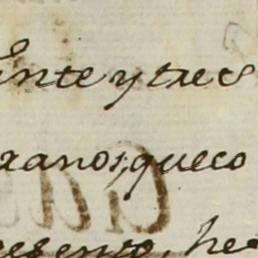 inte y tres
ranos, que co
resento, he